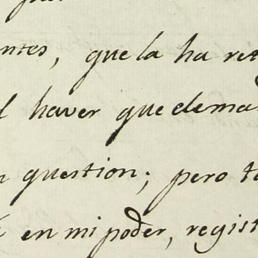 ntes, que la ha re
l haver que dema
n question; pero t
en mi poder, regist